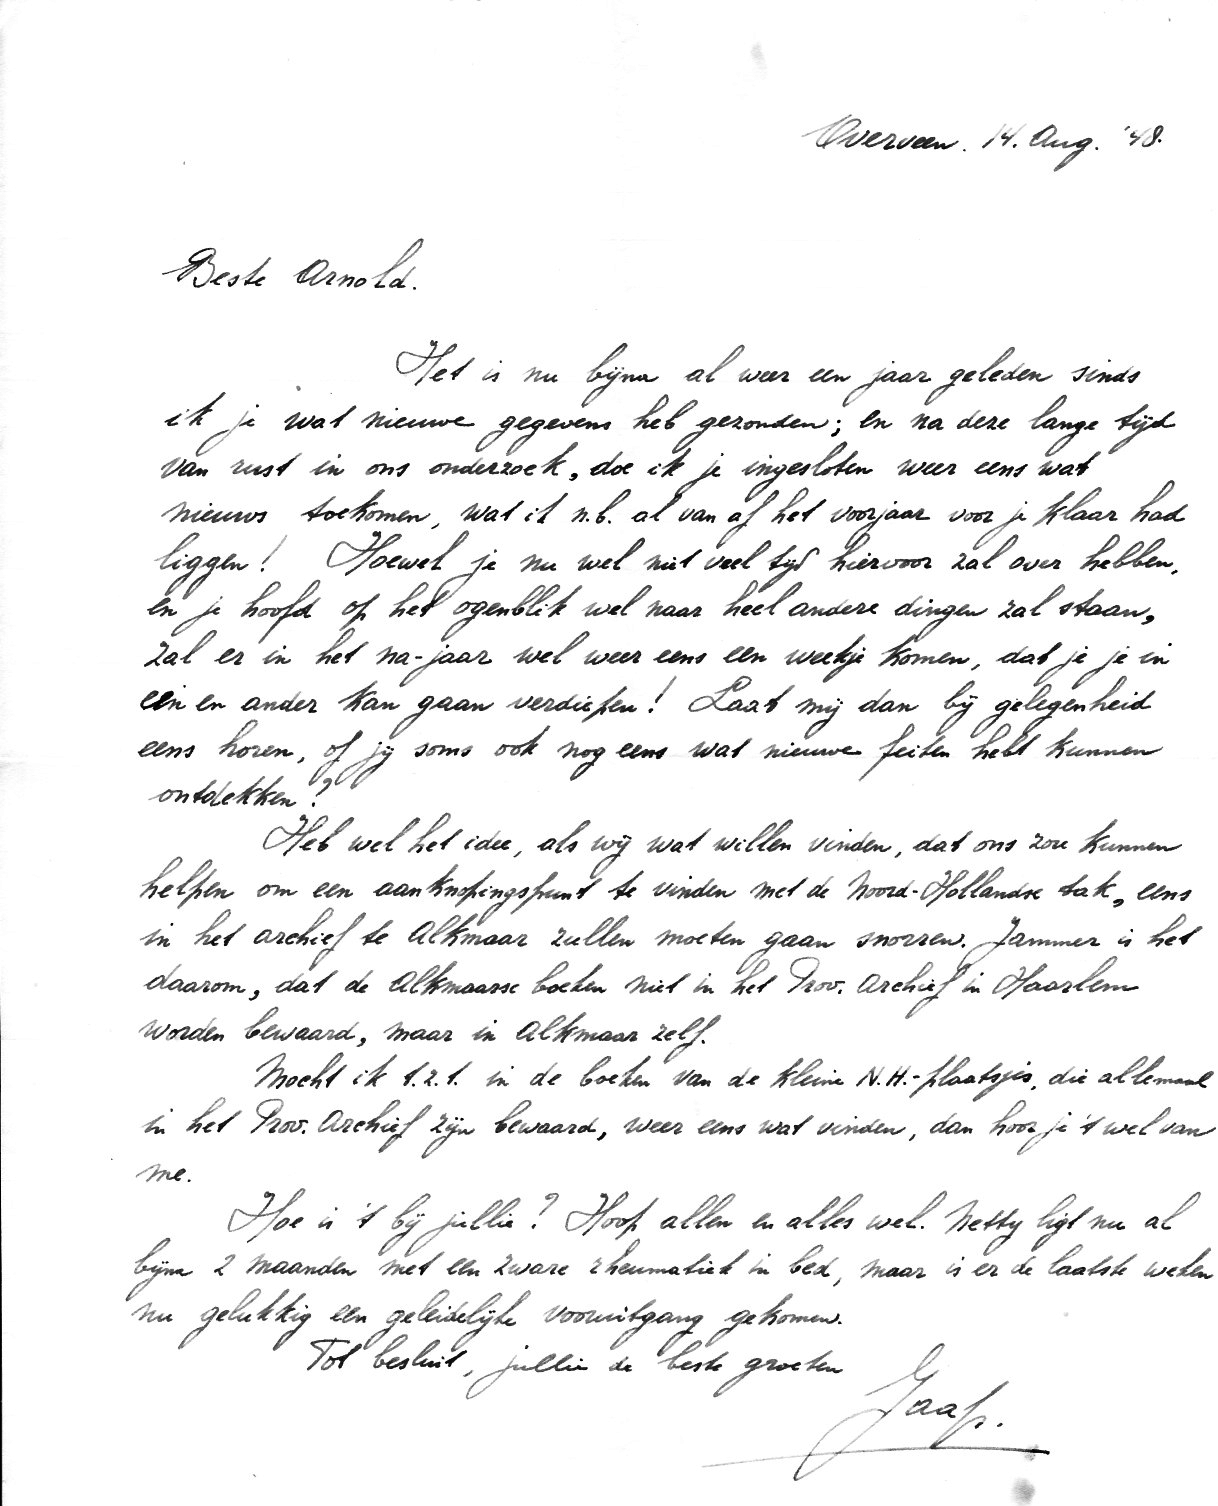 Overveen. 14. Aug. '48.
Beste Arnold.
Het is nu bijna al weer een jaar geleden sinds
ik je wat nieuwe gegevens heb gezonden; en na deze lange tijd
van rust in ons onderzoek, doe ik je ingesloten weer eens wat
nieuws toekomen, wat ik n.b. al van af het voorjaar voor je klaar had
liggen! Hoewel je nu wel niet veel tijd hiervoor zal over hebben,
en je hoofd op het ogenblik wel naar heel andere dingen zal staan,
zal er in het na-jaar wel weer eens een weekje komen, dat je je in
een en ander kan gaan verdiepen! Laat mij dan bij gelegenheid
eens horen, of jij soms ook nog eens wat nieuwe feiten hebt kunnen
ontdekken?
Heb wel het idee, als wij wat willen vinden, dat ons zou kunnen
helpen om een aanknopingspunt te vinden met de Noord-Hollandse tak, eens
in het archief te Alkmaar zullen moeten gaan snorren. Jammer is het
daarom, dat de Alkmaarse boeken niet in het Prov. Archief in Haarlem
worden bewaard, maar in Alkmaar zelf.
Mocht ik t.z.t. in de boeken van de kleine N.H.-plaatsjes, die allemaal
in het Prov. Archief zijn bewaard, weer eens wat vinden, dan hoor je 't wel van
me.
Hoe is 't bij jullie? Hoop allen en alles wel. Netty ligt nu al
bijna 2 maanden met een zware rheumatiek in bed, maar is er de laatste weken
nu gelukkig een geleidelijke vooruitgang gekomen.
Tot besluit, jullie de beste groeten
Jaap.